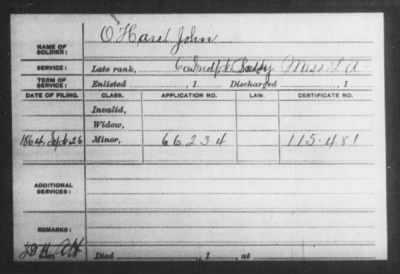 NAME OF SOLDIER: O'Hare John
SERVICE: Late rank, Miss
TERM OF SERVICE: Enlisted , 1 Discharged , 1
DATE OF FILING. CLASS. APPLICATION NO. LAW. CERTIFICATE NO.
Invalid,
Widow,
1864, Sept 26 Minor, 66234 115.481
ADDITIONAL SERVICES:
REMARKS:
Died , 1 , at